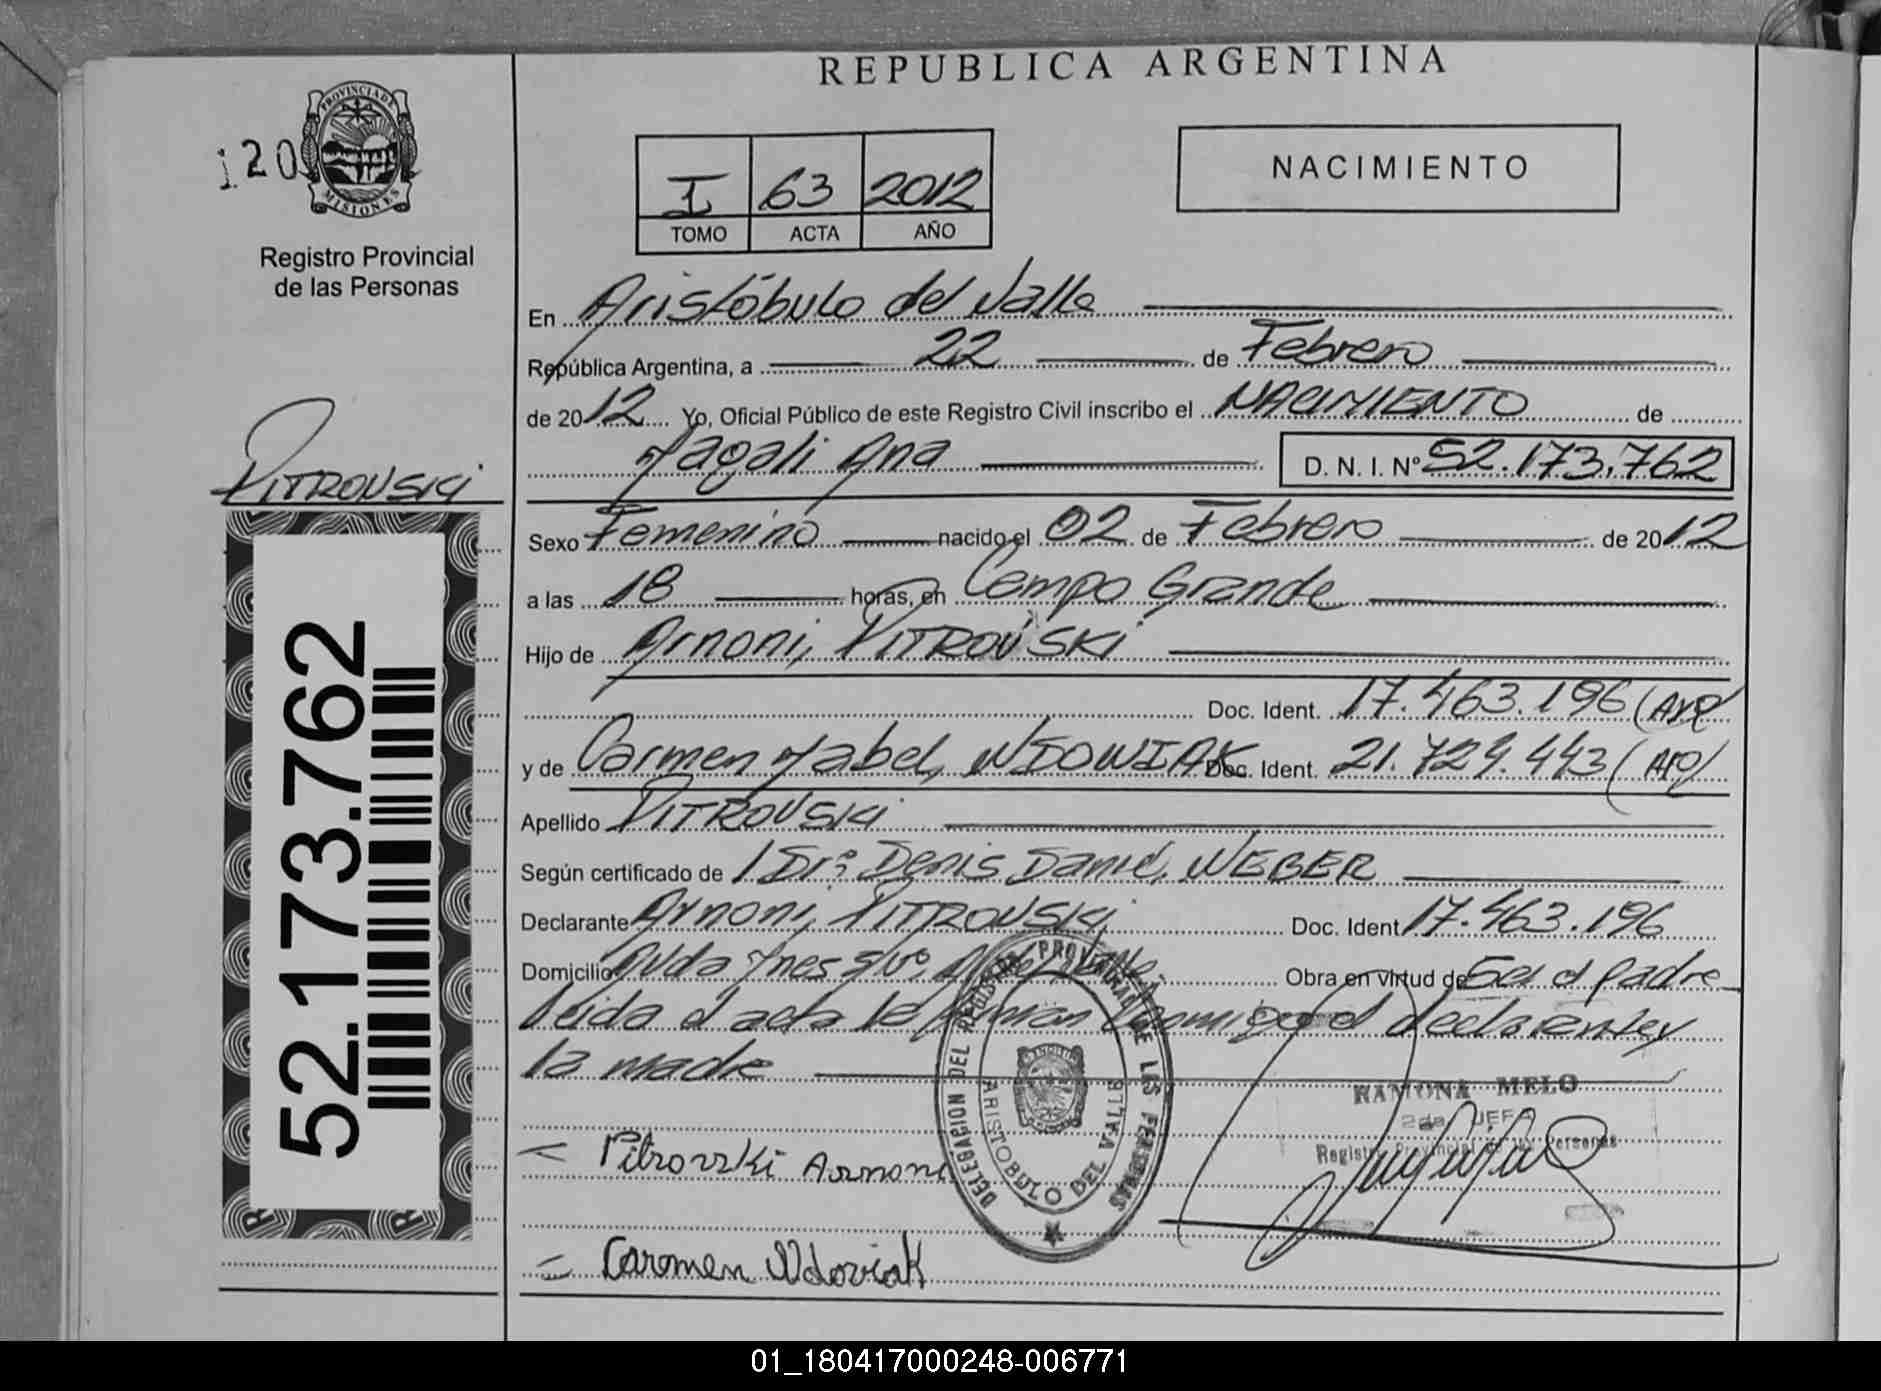 REPUBLICA ARGENTINA
120
PROVINCIA DE MISIONES
Registro Provincial
de las Personas
I 63 2012
TOMO ACTA AÑO
NACIMIENTO
En Aristóbulo del Valle
República Argentina, a 22 de Febrero
de 2012 Yo, Oficial Público de este Registro Civil inscribo el NACIMIENTO de
Magali Ana D. N. I. Nº 52.173.762
PITROVSKI
Sexo Femenino nacido el 02 de Febrero de 2012
a las 18 horas, en Campo Grande
Hijo de Arnoni, PITROVSKI
Doc. Ident. 17.463.196 (Arg)
y de Carmen Mabel, WDOWIAK Doc. Ident. 21.724.443 (Arg)
Apellido PITROVSKI
Según certificado de Dr: Denis Daniel, WEBER
Declarante Arnoni, PITROVSKI Doc. Ident 17.463.196
Domicilio Avda Ines s/nº Obra en virtud de Ser el padre
Leida el acta la firman conmigo el declarante y
la madre
52.173.762
DELEGACION DEL REGISTRO PROVINCIAL DE LAS PERSONAS
ARISTOBULO DEL VALLE
RAMONA MELO
2da JEFA
Registro Provincial de las Personas
Pitrovski Arnoni
Carmen Wdoviak
01_180417000248-006771